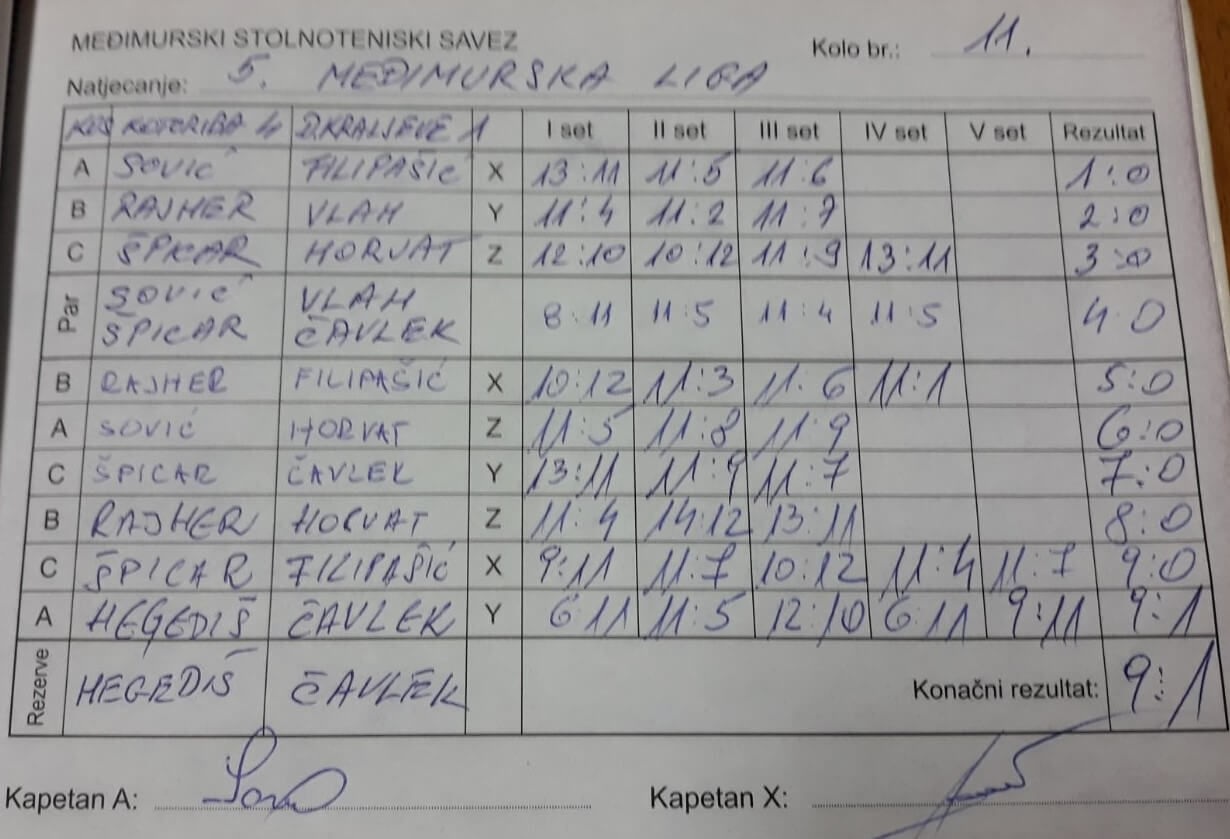 MEĐIMURSKI STOLNOTENISKI SAVEZ
Kolo br.: 11.
Natjecanje: 5. MEĐIMURSKA LIGA
KOTORIBA 4 D.KRALJEVEC 1 I set II set III set IV set V set Rezultat
A SOVIĆ FILIPAŠIĆ X 13:11 11:5 11:6 1:0
B RAJHER VLAH Y 11:4 11:2 11:7 2:0
C ŠPICAR HORVAT Z 12:10 10:12 11:9 13:11 3:0
Par
SOVIĆ VLAH
ŠPICAR ČAVLEK
8:11 11:5 11:4 11:5 4:0
B RAJHER FILIPAŠIĆ X 10:12 11:3 11:6 11:1 5:0
A SOVIĆ HORVAT Z 11:5 11:8 11:9 6:0
C ŠPICAR ČAVLEK Y 13:11 11:9 11:7 7:0
B RAJHER HORVAT Z 11:4 14:12 13:11 8:0
C ŠPICAR FILIPAŠIĆ X 9:11 11:7 10:12 11:4 11:7 9:0
A HEGEDIŠ ČAVLEK Y 6:11 11:5 12:10 6:11 9:11 9:1
Rezerve HEGEDIŠ ČAVLEK Konačni rezultat: 9:1
Kapetan A: Kapetan X: